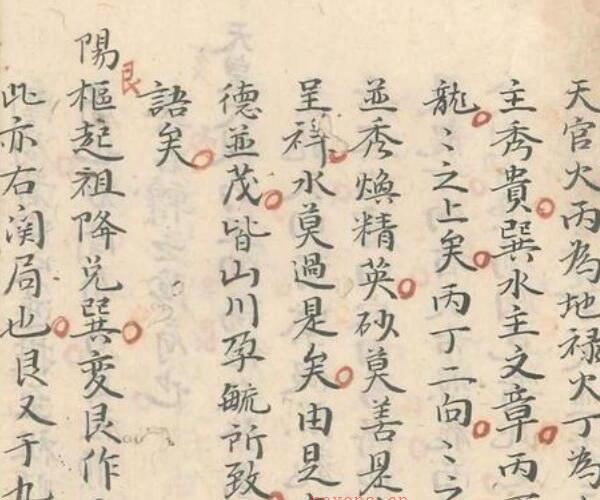 天官火丙為地禄火丁為
主秀貴巽水主文章丙
龍〻之上矣丙丁二向〻之
並秀煥精英砂莫善是
呈祥水莫過是矣由是
德並茂皆山川孕毓所致
語矣
陽樞起祖降兌巽變艮作
艮
此亦右関局也艮又于九